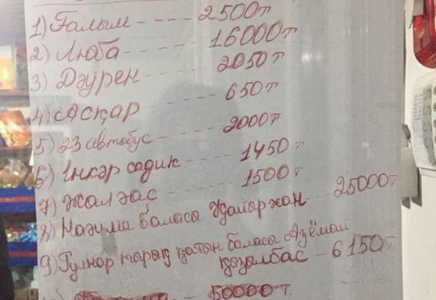 1) Ғалым --- 2500т
2) Люба --- 16000т
3) Дәурен --- 2050т
4) Асқар --- 650т
5) 23 автобус --- 2000т
6) Інкәр садик --- 1450т
7) Жалғас --- 1500т
8) Назима баласы Жамыржан --- 25000т
9) Гулнар қатын баласы қозалбас - 6150т
50000т